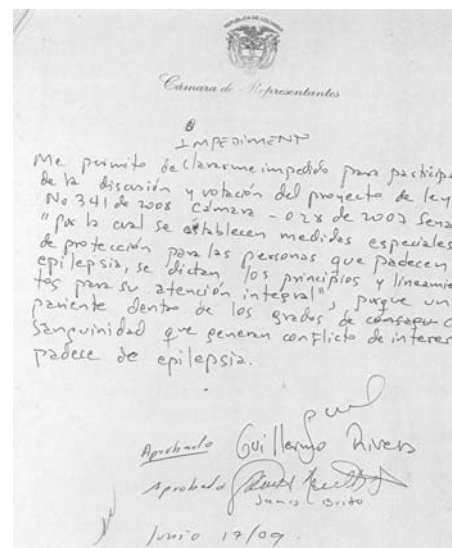 REPUBLICA DE COLOMBIA
Cámara de Representantes
IMPEDIMENTO
Me permito declararme impedido para participa
de la discusión y votación del proyecto de ley
No 341 de 2008 Cámara - 028 de 2007 Sena
"por la cual se establecen medidas especiales
de protección para las personas que padecen
epilepsia, se dictan los principios y lineamie
tos para su atención integral", porque un
pariente dentro de los grados de
sanguinidad que generan conflicto de interes
padece de epilepsia.
Aprobado Guillermo Rivera
Aprobado
James Brito
Junio 17/09.